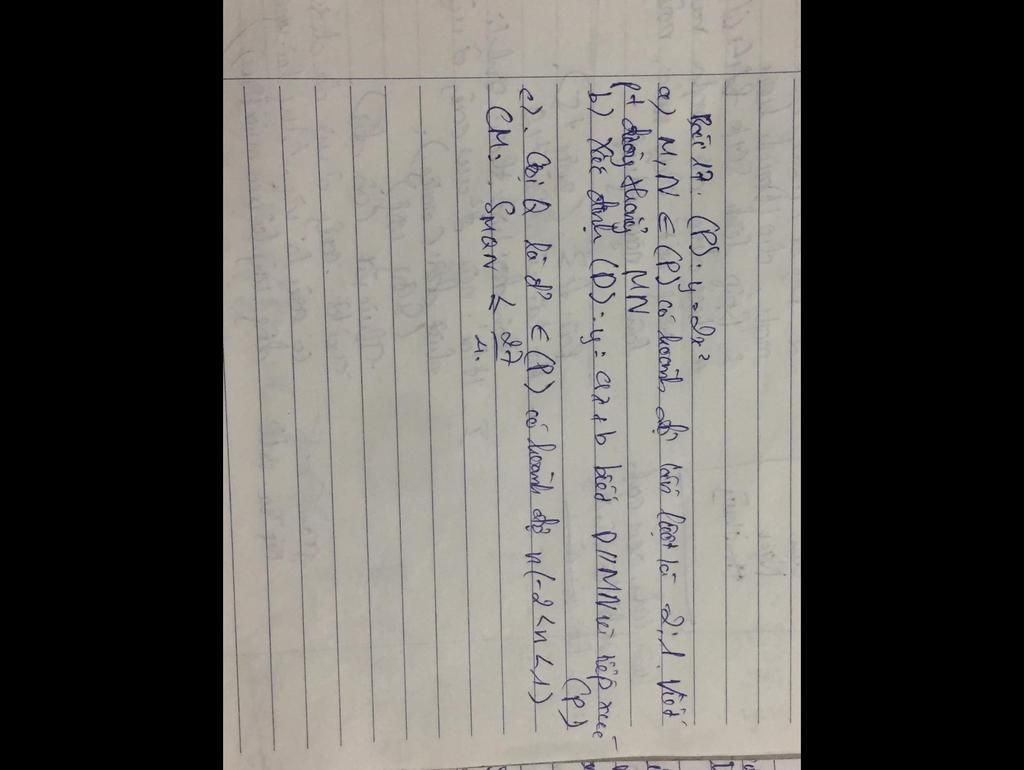 Bài 17. (P): y = 2x²
a) M, N ∈ (P) có hoành độ lần lượt là 2; 1. Viết
pt đường thẳng MN
b) Xác định (D): y = ax + b biết D // MN và tiếp xúc
(P)
c). Gọi Q là đ' ∈ (P) có hoành độ n (-2 < n < 1)
CM: S MQN ≤ 27/4.